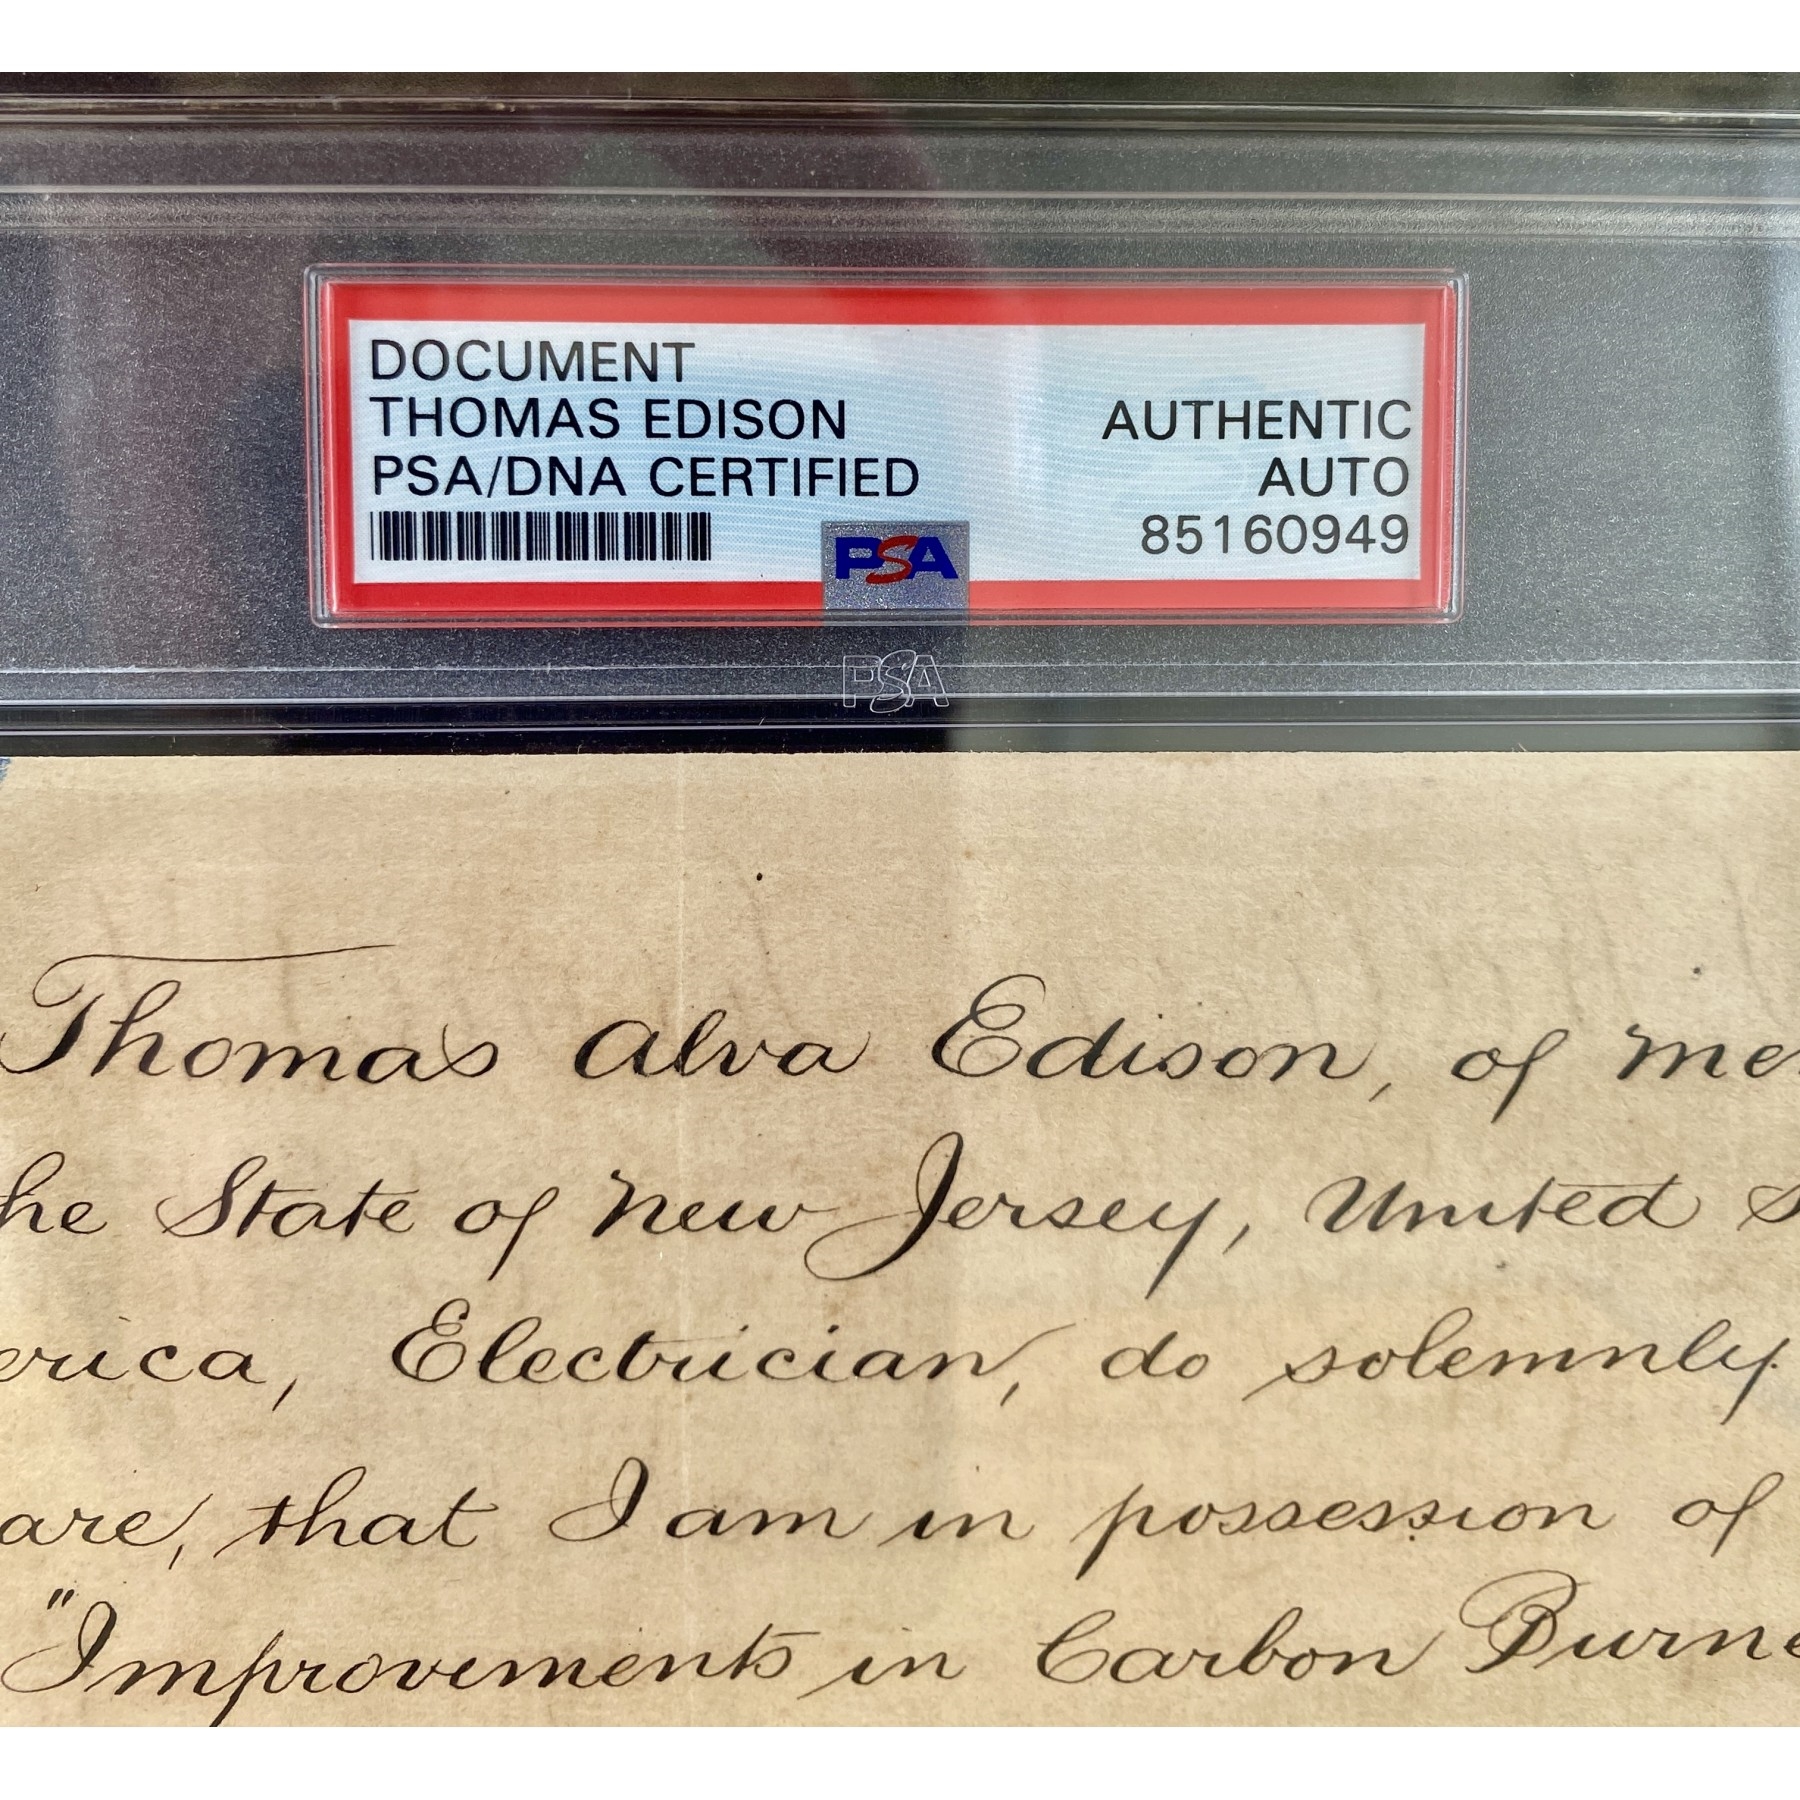 DOCUMENT
THOMAS EDISON AUTHENTIC
PSA/DNA CERTIFIED AUTO
85160949
PSA
PSA
Thomas Alva Edison, of Me
he State of New Jersey, United S
erica, Electrician, do solemnly
are, that I am in possession of
"Improvements in Carbon Burne